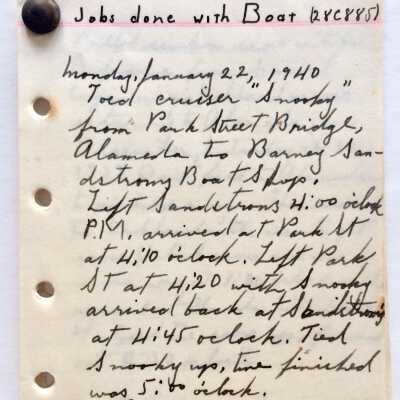 Jobs done with Boat (28C885)
Monday, January 22, 1940
Toed cruiser "Snooky"
from Park Street Bridge,
Alameda to Barney San-
dstroms Boat Shop.
Left Sandstroms 4:00 oclock
P.M. arrived at Park St
at 4:10 o'clock. Left Park
St at 4:20 with Snooky
arrived back at Sandstroms
at 4:45 oclock. Tied
Snooky up, time finished
was 5:00 o'clock.